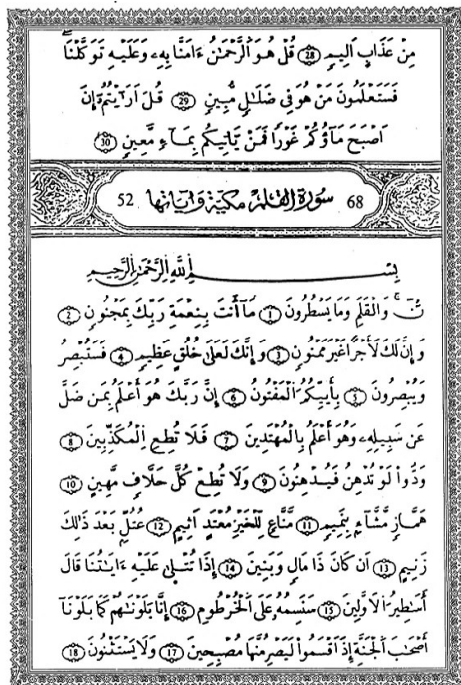 مِنْ عَذَابٍ اَلِيمٍ 28 قُلْ هُوَ اَ۬لرَّحْمَٰنُ ءَامَنَّا بِهِۦ وَعَلَيْهِ تَوَكَّلْنَاۖ
فَسَتَعْلَمُونَ مَنْ هُوَ فِى ضَلَٰلٍ مُّبِينٍ 29 قُلَ اَرَٰٓيْتُمُۥٓ إِنَ
اَصْبَحَ مَآؤُكُمْ غَوْرًا فَمَنْ يَّاتِيكُم بِمَآءٍ مَّعِينٍ 30
68 سورة القلم مكية وآياتها 52
بِسْمِ اِ۬للَّهِ اِ۬لرَّحْمَٰنِ اِ۬لرَّحِيمِ
نَّۚ وَالْقَلَمِ وَمَا يَسْطُرُونَ 1 مَآ أَنتَ بِنِعْمَةِ رَبِّكَ بِمَجْنُونٍ 2
وَإِنَّ لَكَ لَأَجْرًا غَيْرَ مَمْنُونٍ 3 وَإِنَّكَ لَعَلَىٰ خُلُقٍ عَظِيمٍ 4 فَسَتُبْصِرُ
وَيُبْصِرُونَ 5 بِأَييِّكُمُ اُ۬لْمَفْتُونُ 6 إِنَّ رَبَّكَ هُوَ أَعْلَمُ بِمَن ضَلَّ
عَن سَبِيلِهِۦ وَهُوَ أَعْلَمُ بِالْمُهْتَدِينَ 7 فَلَا تُطِعِ اِ۬لْمُكَذِّبِينَ 8
وَدُّوا۟ لَوْ تُدْهِنُ فَيُدْهِنُونَ 9 وَلَا تُطِعْ كُلَّ حَلَّافٍ مَّهِينٍ 10
هَمَّازٍ مَّشَّآءٍ بِنَمِيمٍ 11 مَّنَّاعٍ لِّلْخَيْرِ مُعْتَدٍ اَثِيمٍ 12 عُتُلٍّ بَعْدَ ذَٰلِكَ
زَنِيمٍ 13 اَن كَانَ ذَا مَالٍ وَبَنِينَ 14 إِذَا تُتْلَىٰ عَلَيْهِ ءَايَٰتُنَا قَالَ
أَسَٰطِيرُ اُ۬لَاوَّلِينَ 15 سَنَسِمُهُۥ عَلَى اَ۬لْخُرْطُومِ 16 إِنَّا بَلَوْنَٰهُمْ كَمَا بَلَوْنَآ
أَصْحَٰبَ اَ۬لْجَنَّةِ إِذَ اَقْسَمُوا۟ لَيَصْرِمُنَّهَا مُصْبِحِينَ 17 وَلَا يَسْتَثْنُونَ 18